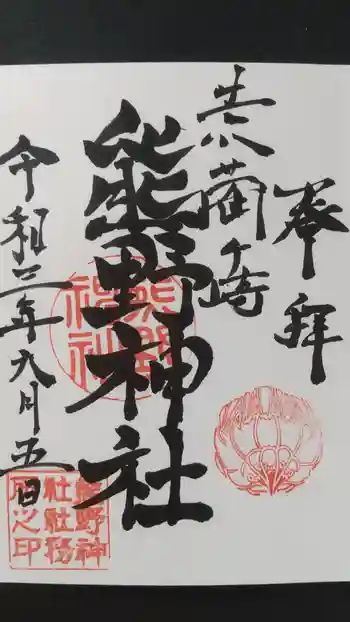 奉拝
志茵ヶ崎
熊野神社
令和三年九月五日
熊野神社
熊野神
社社務
所之印